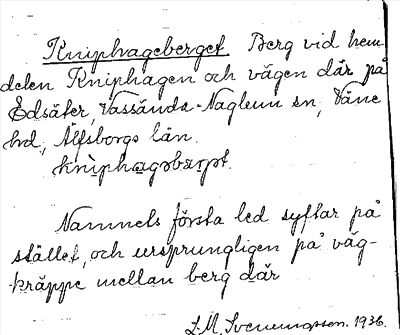 Kniphageberget. Berg vid hem-
delen Kniphagen och vägen där på
Edsäter, Vassända-Naglum sn, Väne
hd., Älfsborgs län.
knìphagəbærjət.
Namnets första led syftar på
stället, och ursprungligen på väg-
kräppe mellan berg där
S.M. Svenungsson. 1936.